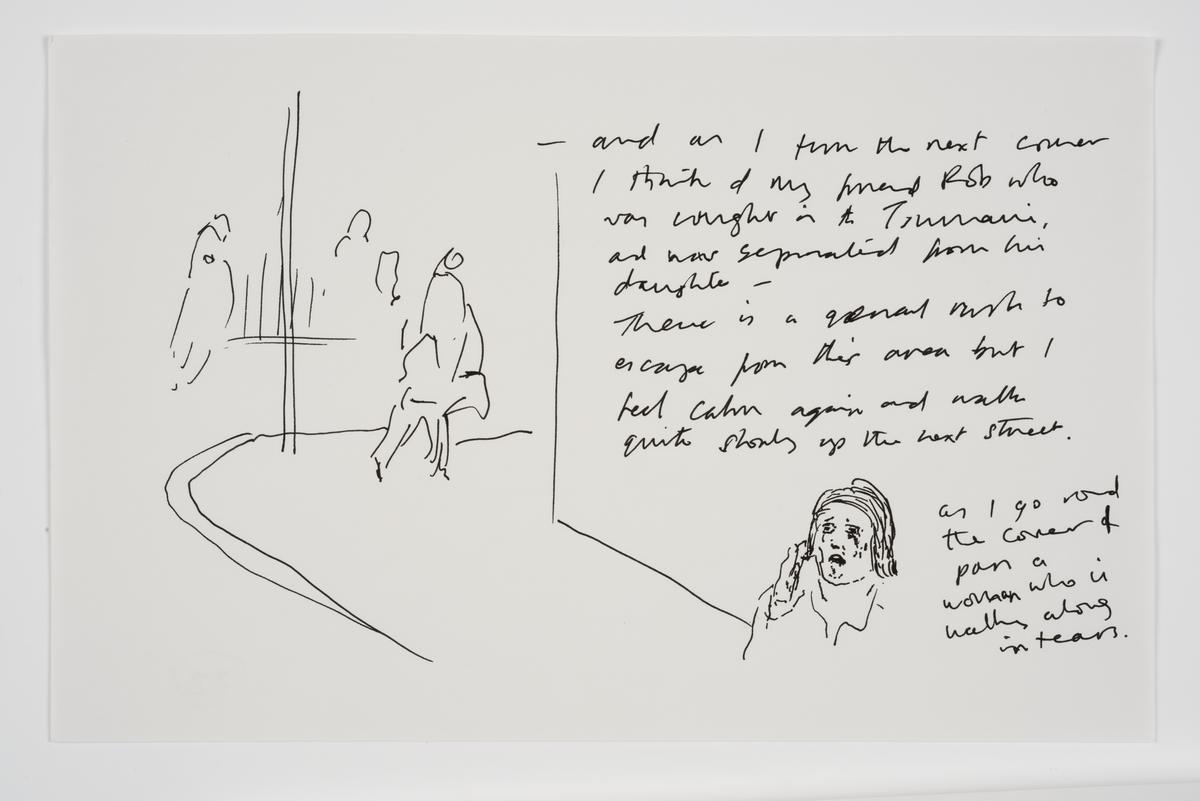 — and as I turn the next corner
I think of my friend Rob who
was caught in the Tsunami,
and was separated from his
daughter —
There is a general rush to
escape from this area but I
feel calm again and walk
quite slowly up the next street.
as I go round
the corner I
pass a
woman who is
walking along
in tears.